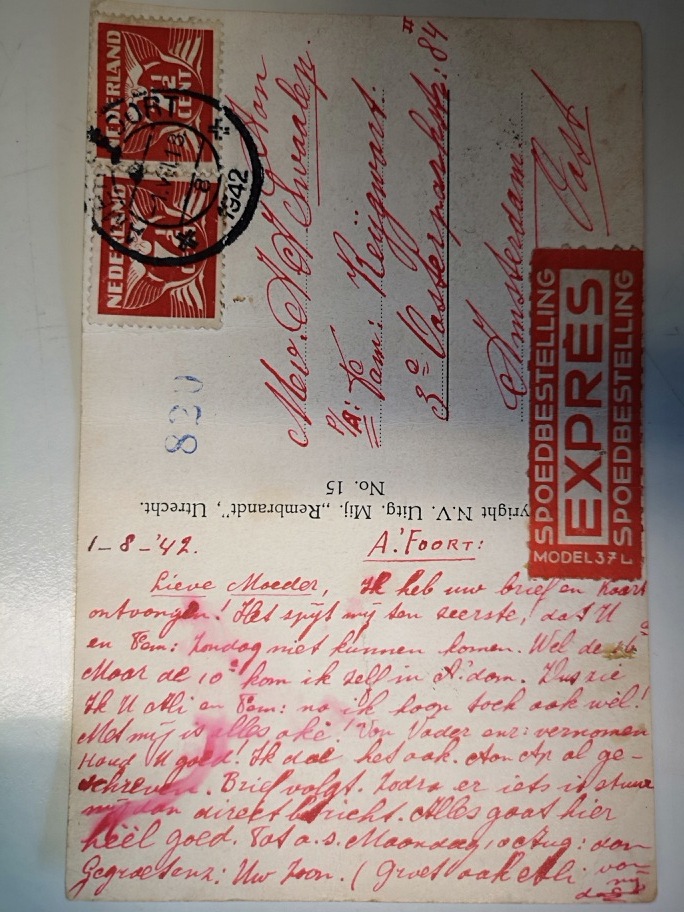 NEDERLAND
CENT
NEDERLAND
1942
820
Aan
Mev.
Fam: Reijgwart.
3e Oosterparkstr: 84 II
Amsterdam
Oost
SPOEDBESTELLING
EXPRES
SPOEDBESTELLING
MODEL 37 L
yright N.V. Uitg. Mij. „Rembrandt”, Utrecht.
No. 15
1-8-'42. A.'FOORT:
Lieve Moeder, Ik heb uw brief en Kaart
ontvangen! Het spijt mij ten zeerste, dat U
en Fam: Zondag niet kunnen komen. Wel de
Maar de 10e kom ik zelf in A'dam. Dus zie
Ik U Ali en Fam: na ik hoop toch ook wel!
Met mij is alles oké! Van Vader enz: vernomen
Houd U goed! Ik doe het ook. Aan Ap al ge-
schreven. Brief volgt. Zodra er iets is stuur
mij dan direct bericht. Alles gaat hier
héél goed. Tot a.s. Maandag, Aug: dan
Gegroet enz: Uw Zoon. (Groet ook Ali van
mij